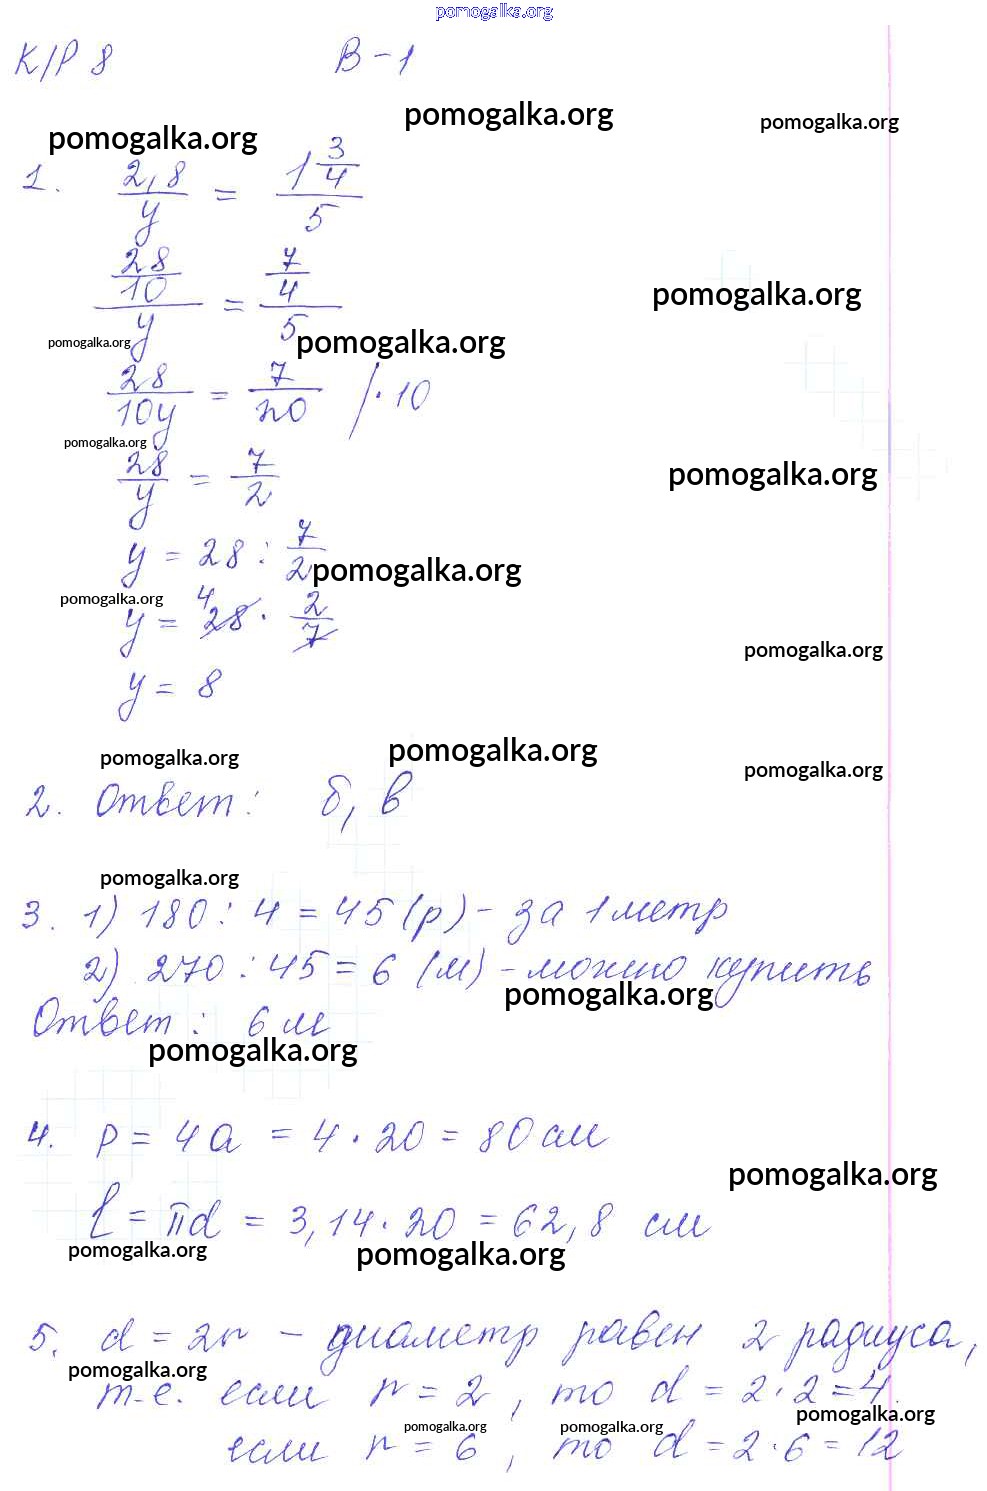 pomogalka.org
К/Р 8 В-1
pomogalka.org pomogalka.org pomogalka.org
1. 2,8/y = 1 3/4 / 5
28/10 / y = 7/4 / 5
pomogalka.org
pomogalka.org pomogalka.org
28/10y = 7/20 /·10
pomogalka.org
28/y = 7/2
pomogalka.org
y = 28 : 7/2
pomogalka.org
pomogalka.org
y = 28 4 · 2/7
pomogalka.org
y = 8
pomogalka.org pomogalka.org pomogalka.org
2. Ответ: б, в
pomogalka.org
3. 1) 180 : 4 = 45 (р) - за 1 метр
2) 270 : 45 = 6 (м) - можно купить
pomogalka.org
Ответ: 6 м
pomogalka.org
4. P = 4a = 4 · 20 = 80 см
pomogalka.org
l = πd = 3,14 · 20 = 62,8 см
pomogalka.org pomogalka.org
5. d = 2r - диаметр равен 2 радиуса,
pomogalka.org
т.е. если r = 2, то d = 2 · 2 = 4.
pomogalka.org
pomogalka.org pomogalka.org
если r = 6, то d = 2 · 6 = 12